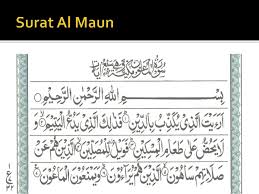 Surat Al Maun
بِسْمِ اللهِ الرَّحْمٰنِ الرَّحِيْمِ
اَرَءَيْتَ الَّذِيْ يُكَذِّبُ بِالدِّيْنِ فَذٰلِكَ الَّذِيْ يَدُعُّ الْيَتِيْمَ وَ
لَا يَحُضُّ عَلٰى طَعَامِ الْمِسْكِيْنِ فَوَيْلٌ لِّلْمُصَلِّيْنَ الَّذِيْنَ هُمْ عَنْ
صَلَاتِهِمْ سَاهُوْنَ الَّذِيْنَ هُمْ يُرَآءُوْنَ وَيَمْنَعُوْنَ الْمَاعُوْنَ